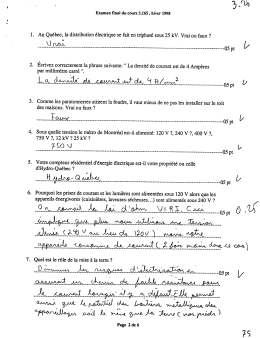 3.25
Examen final du cours 3.165, hiver 1998
1. Au Québec, la distribution électrique se fait en triphasé sous 25 kV. Vrai ou faux ?
Vrai
.05 pt
2. Écrivez correctement la phrase suivante: " La densité de courant est de 4 Ampères
par millimètre carré ".
La densité de courant est de 4 A/mm²
.05 pt
3. Comme les paratonnerres attirent la foudre, il vaut mieux de ne pas les installer sur le toit
des maisons. Vrai ou faux ?
Faux
.05 pt
4. Sous quelle tension le métro de Montréal est-il alimenté: 120 V ?, 240 V ?, 400 V ?,
750 V ?, 12 kV ? 25 kV ?
750 V
.05 pt
5. Votre compteur résidentiel d'énergie électrique est-il votre propriété ou celle
d'Hydro-Québec ?
Hydro-Québec
.05 pt
6. Pourquoi les prises de courant et les lumières sont alimentées sous 120 V alors que les
appareils énergivores (cuisinières, laveuses sécheuses...) sont alimentés sous 240 V ?
On connait la loi d'ohm V=RI. Ceci
.05 pt
0.25
implique que plus nous utilisons une tension
élevée (240 V au lieu de 120V) moins notre
appareils consomme de courant (2 fois moins dans ce cas)
7. Quel est le rôle de la mise à la terre ?
Diminuer les risques d'électrisation en
.05 pt
assurant un chemin de faible résistance pour
le courant lorsqu'il y a défaut. Elle permet
aussi que le potentiel des boitiers métalliques des
appareillages soit le même que la terre
Page 3 de 6
75